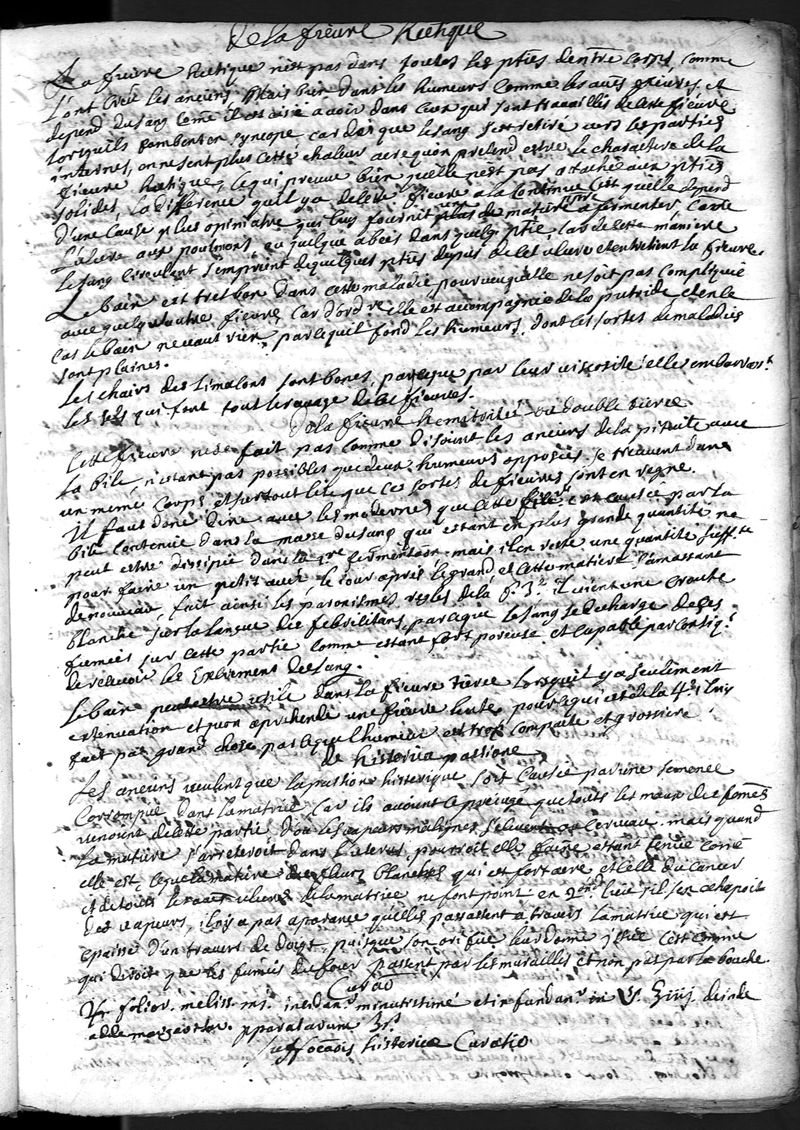 De la fievre hectique
La fievre hectique n'est pas dans toutes les pties de ntre corps comme
l'ont creu les anciens, Mais bien dans les humeurs comme les autres fievres, et
depend du sang comē il est aisé a voir dans ceux qui sont travaillés de cete fievre
lorsquils tombent en syncope car des que le sang s'est retiré vers les parties
internes, on ne sent plus cette chaleur acre quon pretend estre le charactere de la
fievre hectique, ce qui preuve bien quelle n'est pas atachée aux pties
solides, la difference quil y a de cete fievre a la continue c'est quelle depend
d'une cause plus opiniatre qui luy fournit plus de matiere a fermenter, come
l'ulcere aux poulmons, ou quelque abces dans quelq. ptie car de cette maniere
le sang circulant s'empreint de quelques pties de cet ulcere et entretient la fievre.
Le bain est tres bon dans cette maladie pourveu quelle ne soit pas compliquée
avec quelque autre fievre, car d'ordre elle est accompagnée de la putride et en ce
cas le bain ne vaut rien, parce quil fond les humeurs, dont ces sortes de maladies
sont plaines.
Les chairs des limaçons sont bones, parceque par leur viscosité elles embarrasst
les sels qui font tout le ravage de ces fievres.
De la fievre hemitritée ou double tierce
Cette fievre ne se fait pas comme disoint les anciens de la pituite avec
la bile, n'estant pas possibles que deux humeurs opposées se treuvent dans
un meme corps, et surtout lors que ces sortes de fievres sont en regne.
Il faut donc dire avec les modernes que cette fievre est causée par la
bile contenue dans la masse du sang qui estant en plus grande quantité ne
peut estre dissipée dans la 1re fermentaon, mais il en reste une quantité suffte
pour faire un petit accez, le jour après le grand, et cette matiere s'amassant
de nouveau, fait ainsi les paroxismes reglés de la il vient une croute
blanche sur la langue des febricitans, parceque le sang se decharge de ses
fumées sur cette partie comme estant fort poreuse et capable par consiqt
de recevoir les excrement du sang.
Le bain peut estre utile dans la fievre tierce lorsquil y a seulement
extenuation et quon aprehende une fievre lente, pour ce qui est de la 4te il luy
fait pas grand chose parceque l'humeur est trop compacte et grossiere
de histerica passione
Les anciens veulent que la passion histerique soit causée par une semence
Corrompue dans la matrice, car ils avoint ce prejugé que touts les maux des fomes
venoint de cette partie, d'ou les vapeurs malignes s'elevent au cerveau. mais quand
la matiere s'arreteroit dans l'uterus, pourroit elle faire estant tenue comē
elle est, ce que la matiere des fleurs blanches qui est fort acre, et celle du cancer
et de touts les autres ulceres de la matrice ne font point en 2me lieu s'il s'en echapoit
des vapeurs, il n'y a pas aparance quelles passassent a travers la matrice qui est
epaisse d'un travers de doigt, puisque son orifice leur done issue c'est comme
qui diroit que les fumées du four passent par les murailles et non pas par la bouche.
Curao
folior. meliss. ms. minutissimé et infundanr in deinde
adde margaritar. pparatarum
suffocaōis histericæ Curatio